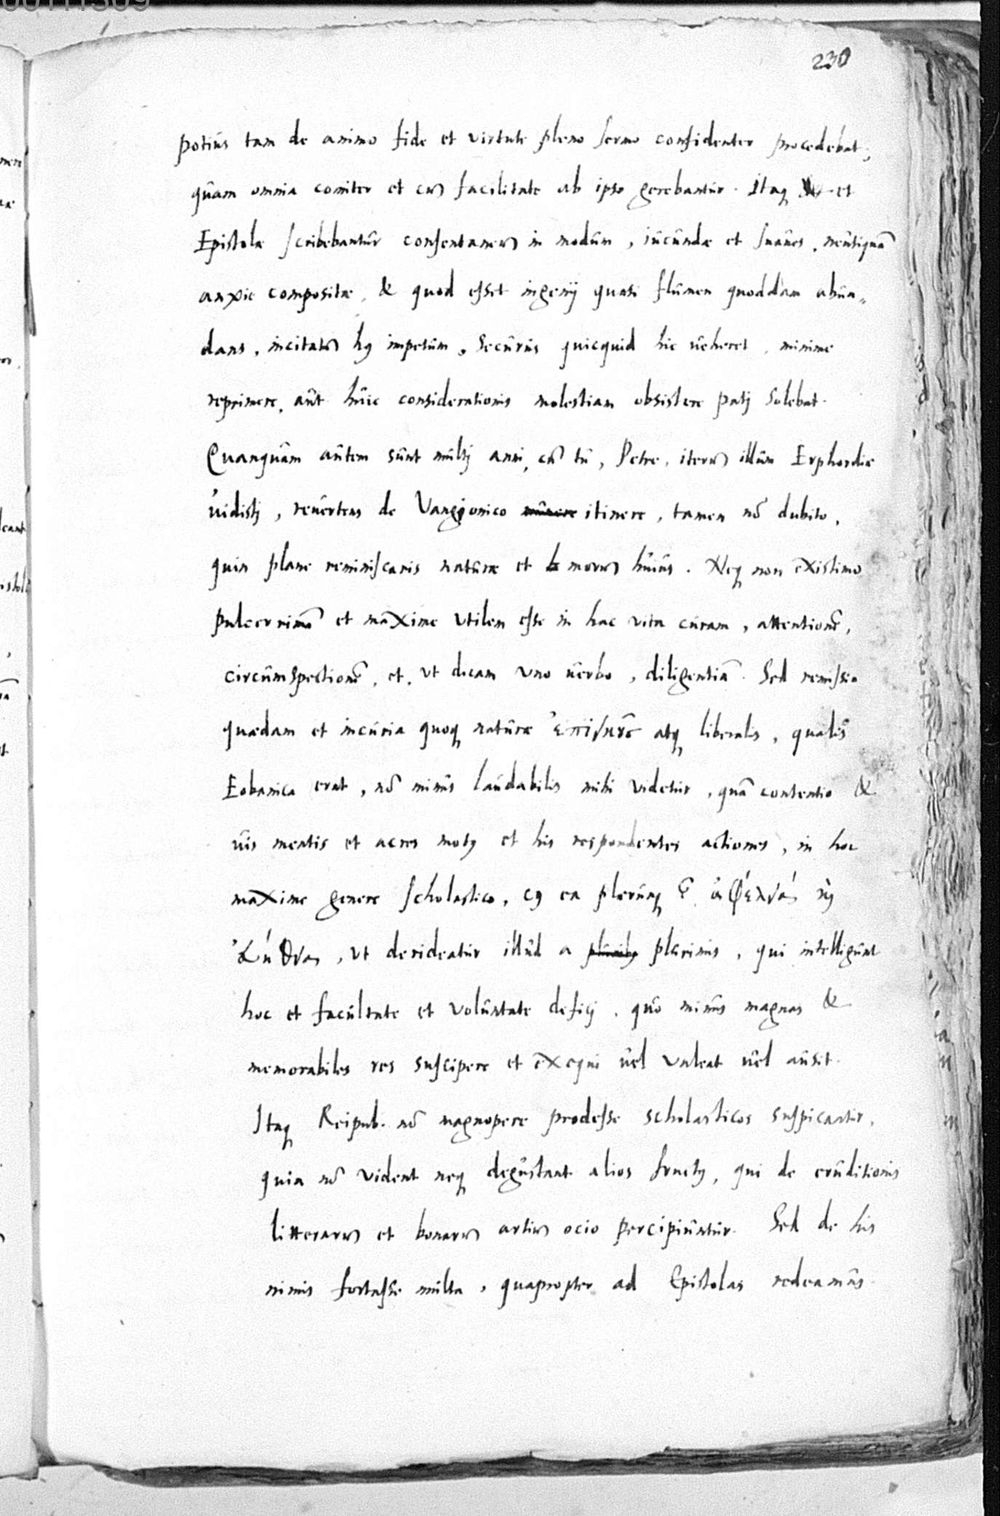 230
potius tam de animo fide et virtute pleno sermo confidenter procedebat,
quam omnia comiter et cum facilitate ab ipso gerebantur. Itaq et
Epistolæ scribebantur consentaneum in modum, iucundæ et suaues, neutiquā
anxie compositæ, & quod esset ingenij quasi flumen quoddam abun„
dans, incitatum hꝰ impetum, Securus quicquid hic ueheret, minime
reprimere, aut huic considerationis molestiam obsistere patj solebat.
Quanquam autem sunt multj anni, cū tu, Petre, iterum illum Erphordiæ
uidistj, reuertens de Vangionico itinere, tamen nō dubito,
quin plane reminiscaris naturæ et morum huius. Neq non existimo
pulcerrimā et maxime vtilem esse in hac vita curam, attentionē,
circumspectionē, et, vt dicam vno uerbo, diligentiā. Sed remissio
quædam et incuria quoq naturæ atq liberalis, qualis
Eobanica erat, nō minus laudabilis mihi videtur, quā contentio &
uis mentis et acres motꝰ et his respondentes actiones, in hoc
maxime genere scholastico, cꝰ ea plerunq ē
, vt derideatur illud a plurimis, qui intelligunt
hoc et facultate et voluntate deficj, quo minus magnas &
memorabiles res suscipere et exequi uel valeat uel ausit.
Itaq Reipub. nō magnopere prodesse scholasticos suspicantur,
quia nō vident neq degustant alios fructꝰ, qui de eruditionis
litterarum et bonarum artium ocio percipiuntur. Sed de his
nimis fortasse multa, quapropter ad Epistolas redeamus.